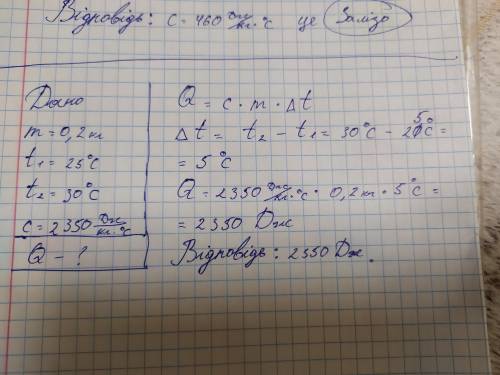 Відповідь: c = 460 Дж/кг·°C це Залізо
Дано
m = 0,2 кг
t₁ = 25°C
t₂ = 30°C
c = 2350 Дж/кг·°C
Q - ?
Q = c · m · Δt
Δt = t₂ - t₁ = 30°C - 25°C =
= 5°C
Q = 2350 Дж/кг·°C · 0,2 кг · 5°C =
= 2350 Дж
Відповідь: 2350 Дж.